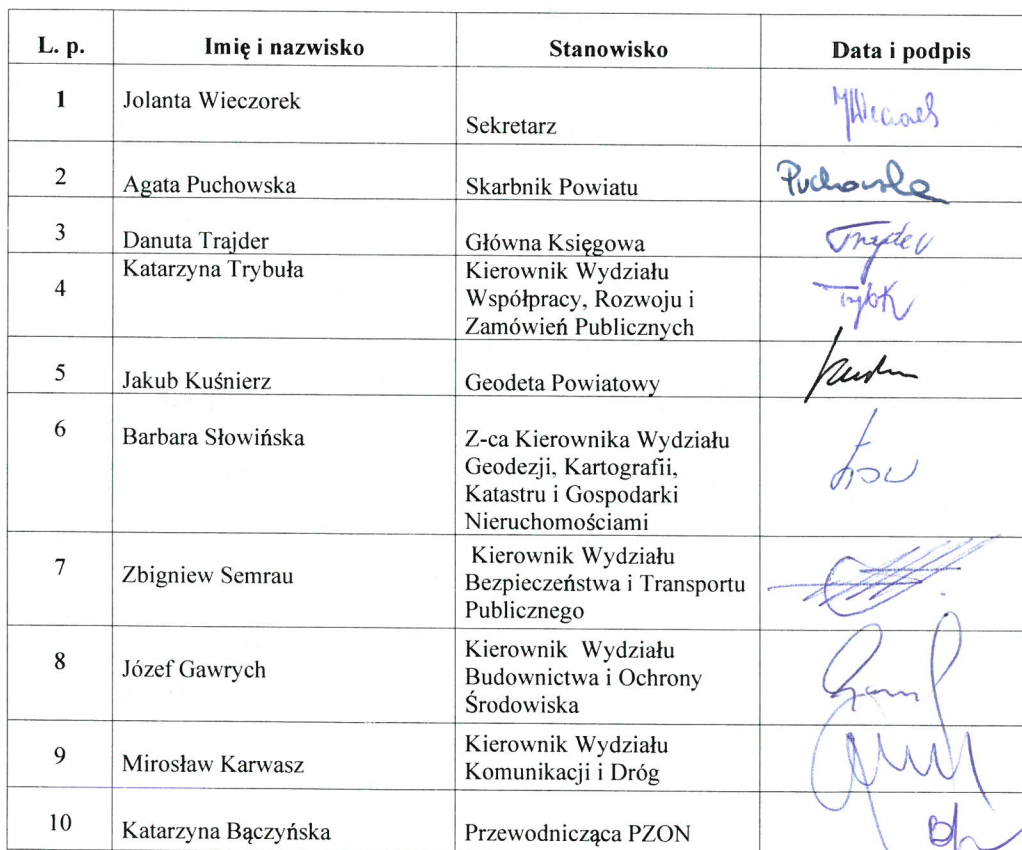 L. p. Imię i nazwisko Stanowisko Data i podpis
1 Jolanta Wieczorek
Sekretarz
2 Agata Puchowska Skarbnik Powiatu Puchowska
3 Danuta Trajder Główna Księgowa Trajder
4 Katarzyna Trybuła Kierownik Wydziału
Współpracy, Rozwoju i
Zamówień Publicznych
5 Jakub Kuśnierz Geodeta Powiatowy
6 Barbara Słowińska Z-ca Kierownika Wydziału
Geodezji, Kartografii,
Katastru i Gospodarki
Nieruchomościami
7 Zbigniew Semrau Kierownik Wydziału
Bezpieczeństwa i Transportu
Publicznego
8 Józef Gawrych Kierownik Wydziału
Budownictwa i Ochrony
Środowiska
9 Mirosław Karwasz Kierownik Wydziału
Komunikacji i Dróg
10 Katarzyna Bączyńska Przewodnicząca PZON